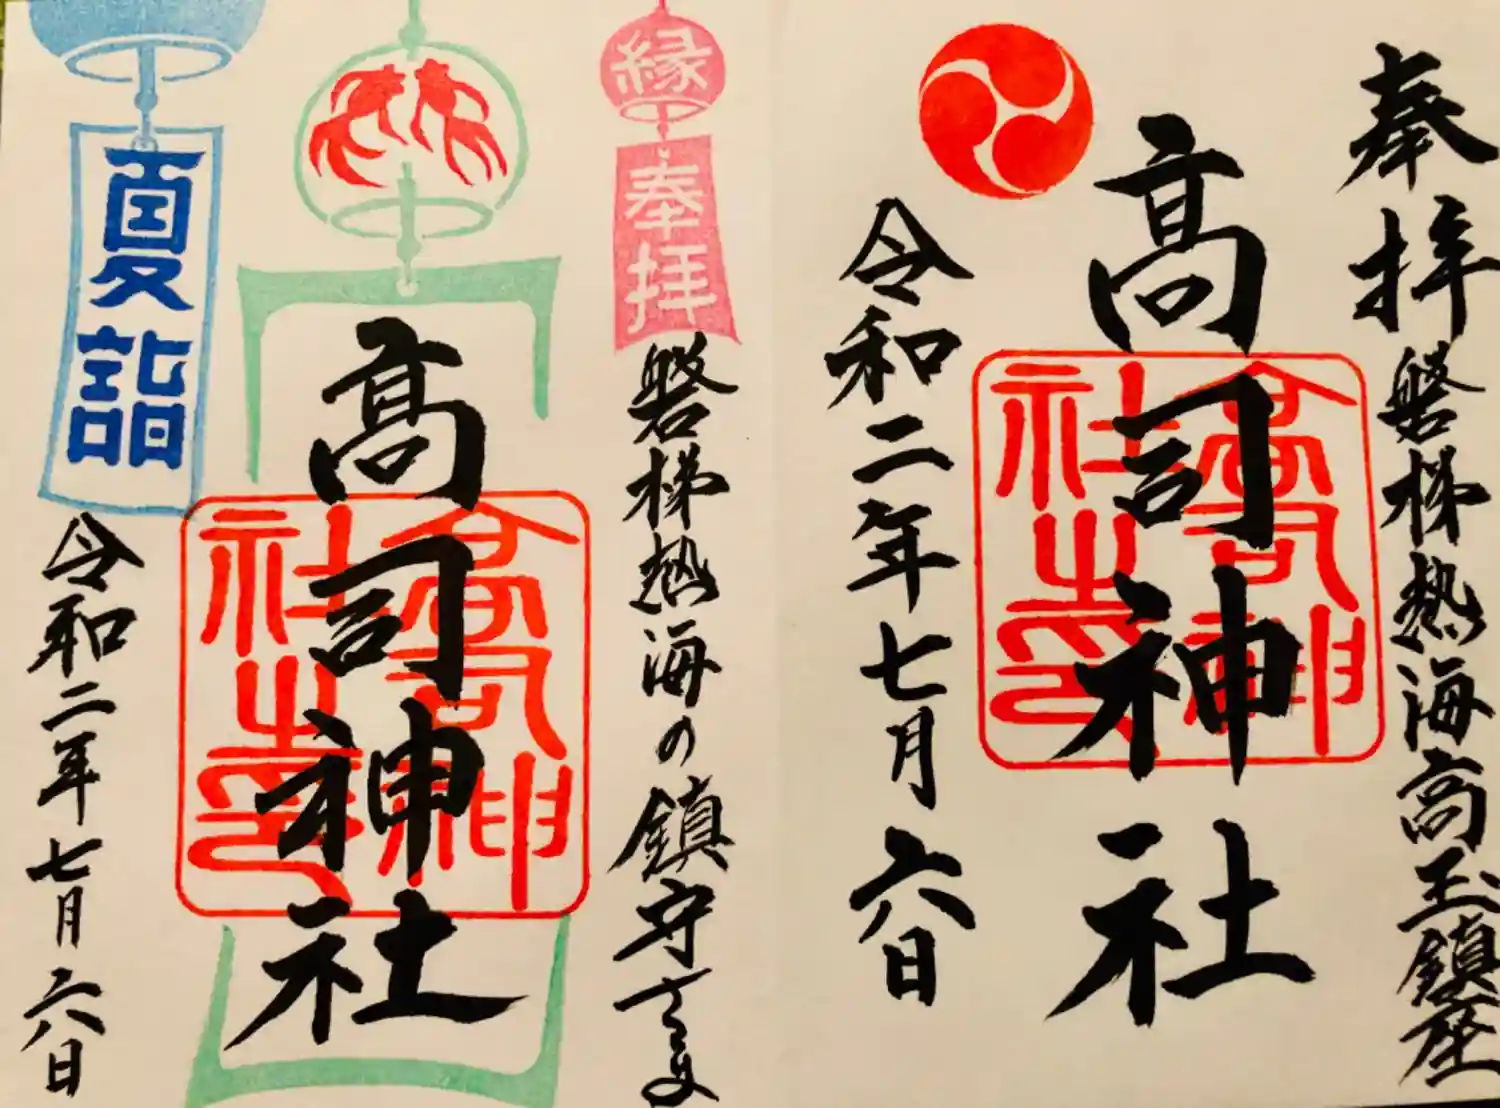 奉拝
磐梯熱海高玉鎮座
髙司神社
高司神社之印
令和二年七月六日
縁
奉拝
磐梯熱海の鎮守さま
髙司神社
高司神社之印
夏詣
令和二年七月六日